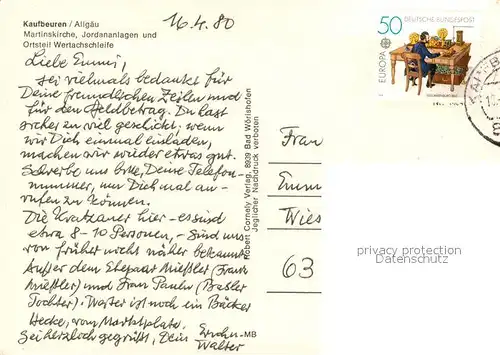 Kaufbeuren / Allgäu
Martinskirche, Jordananlagen und
Ortsteil Wertachschleife
16.4.80
Liebe Emmi,
sei vielmals bedankt für
Deine freundlichen Zeilen und
für den Geldbetrag. Du hast
sicher zu viel geschickt; wenn
wir Dich einmal einladen,
machen wir wieder etwas gut.
Schreibe uns bitte, Deine Telefon-
nummer, um Dich mal an-
rufen zu können.
Die Kratzauer hier - es sind
etwa 8-10 Personen, - sind uns
von früher nicht näher bekannt
Außer dem Ehepaar Mießler (Franz
Mießler) und Frau Paulu (Basler
Tochter). Weiter ist noch ein Bäcker
Hecke, vom Marktplatz.
Sei herzlich gegrüßt, Dein
Walter
MB
Robert Cornely Verlag, 8939 Bad Wörishofen
Jeglicher Nachdruck verboten
50
DEUTSCHE BUNDESPOST
EUROPA
CEPT
Frau
Emm
Wies
63
privacy protection
Datenschutz